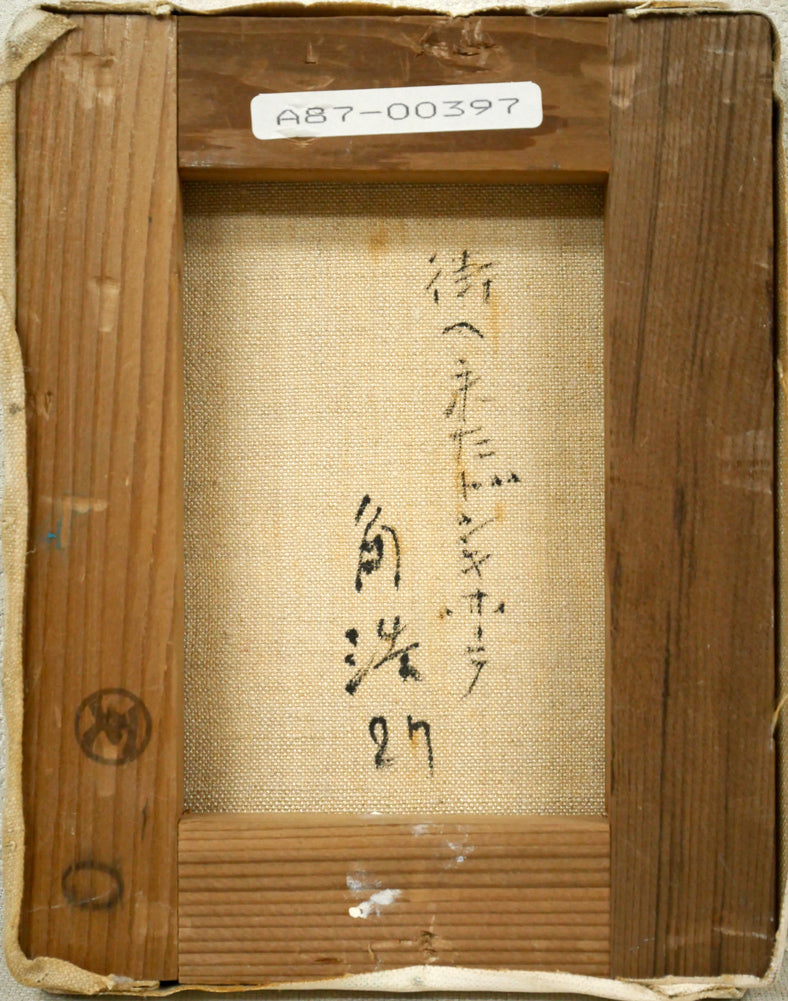 A87-00397
街へ来たドンキホーテ
角浩
27